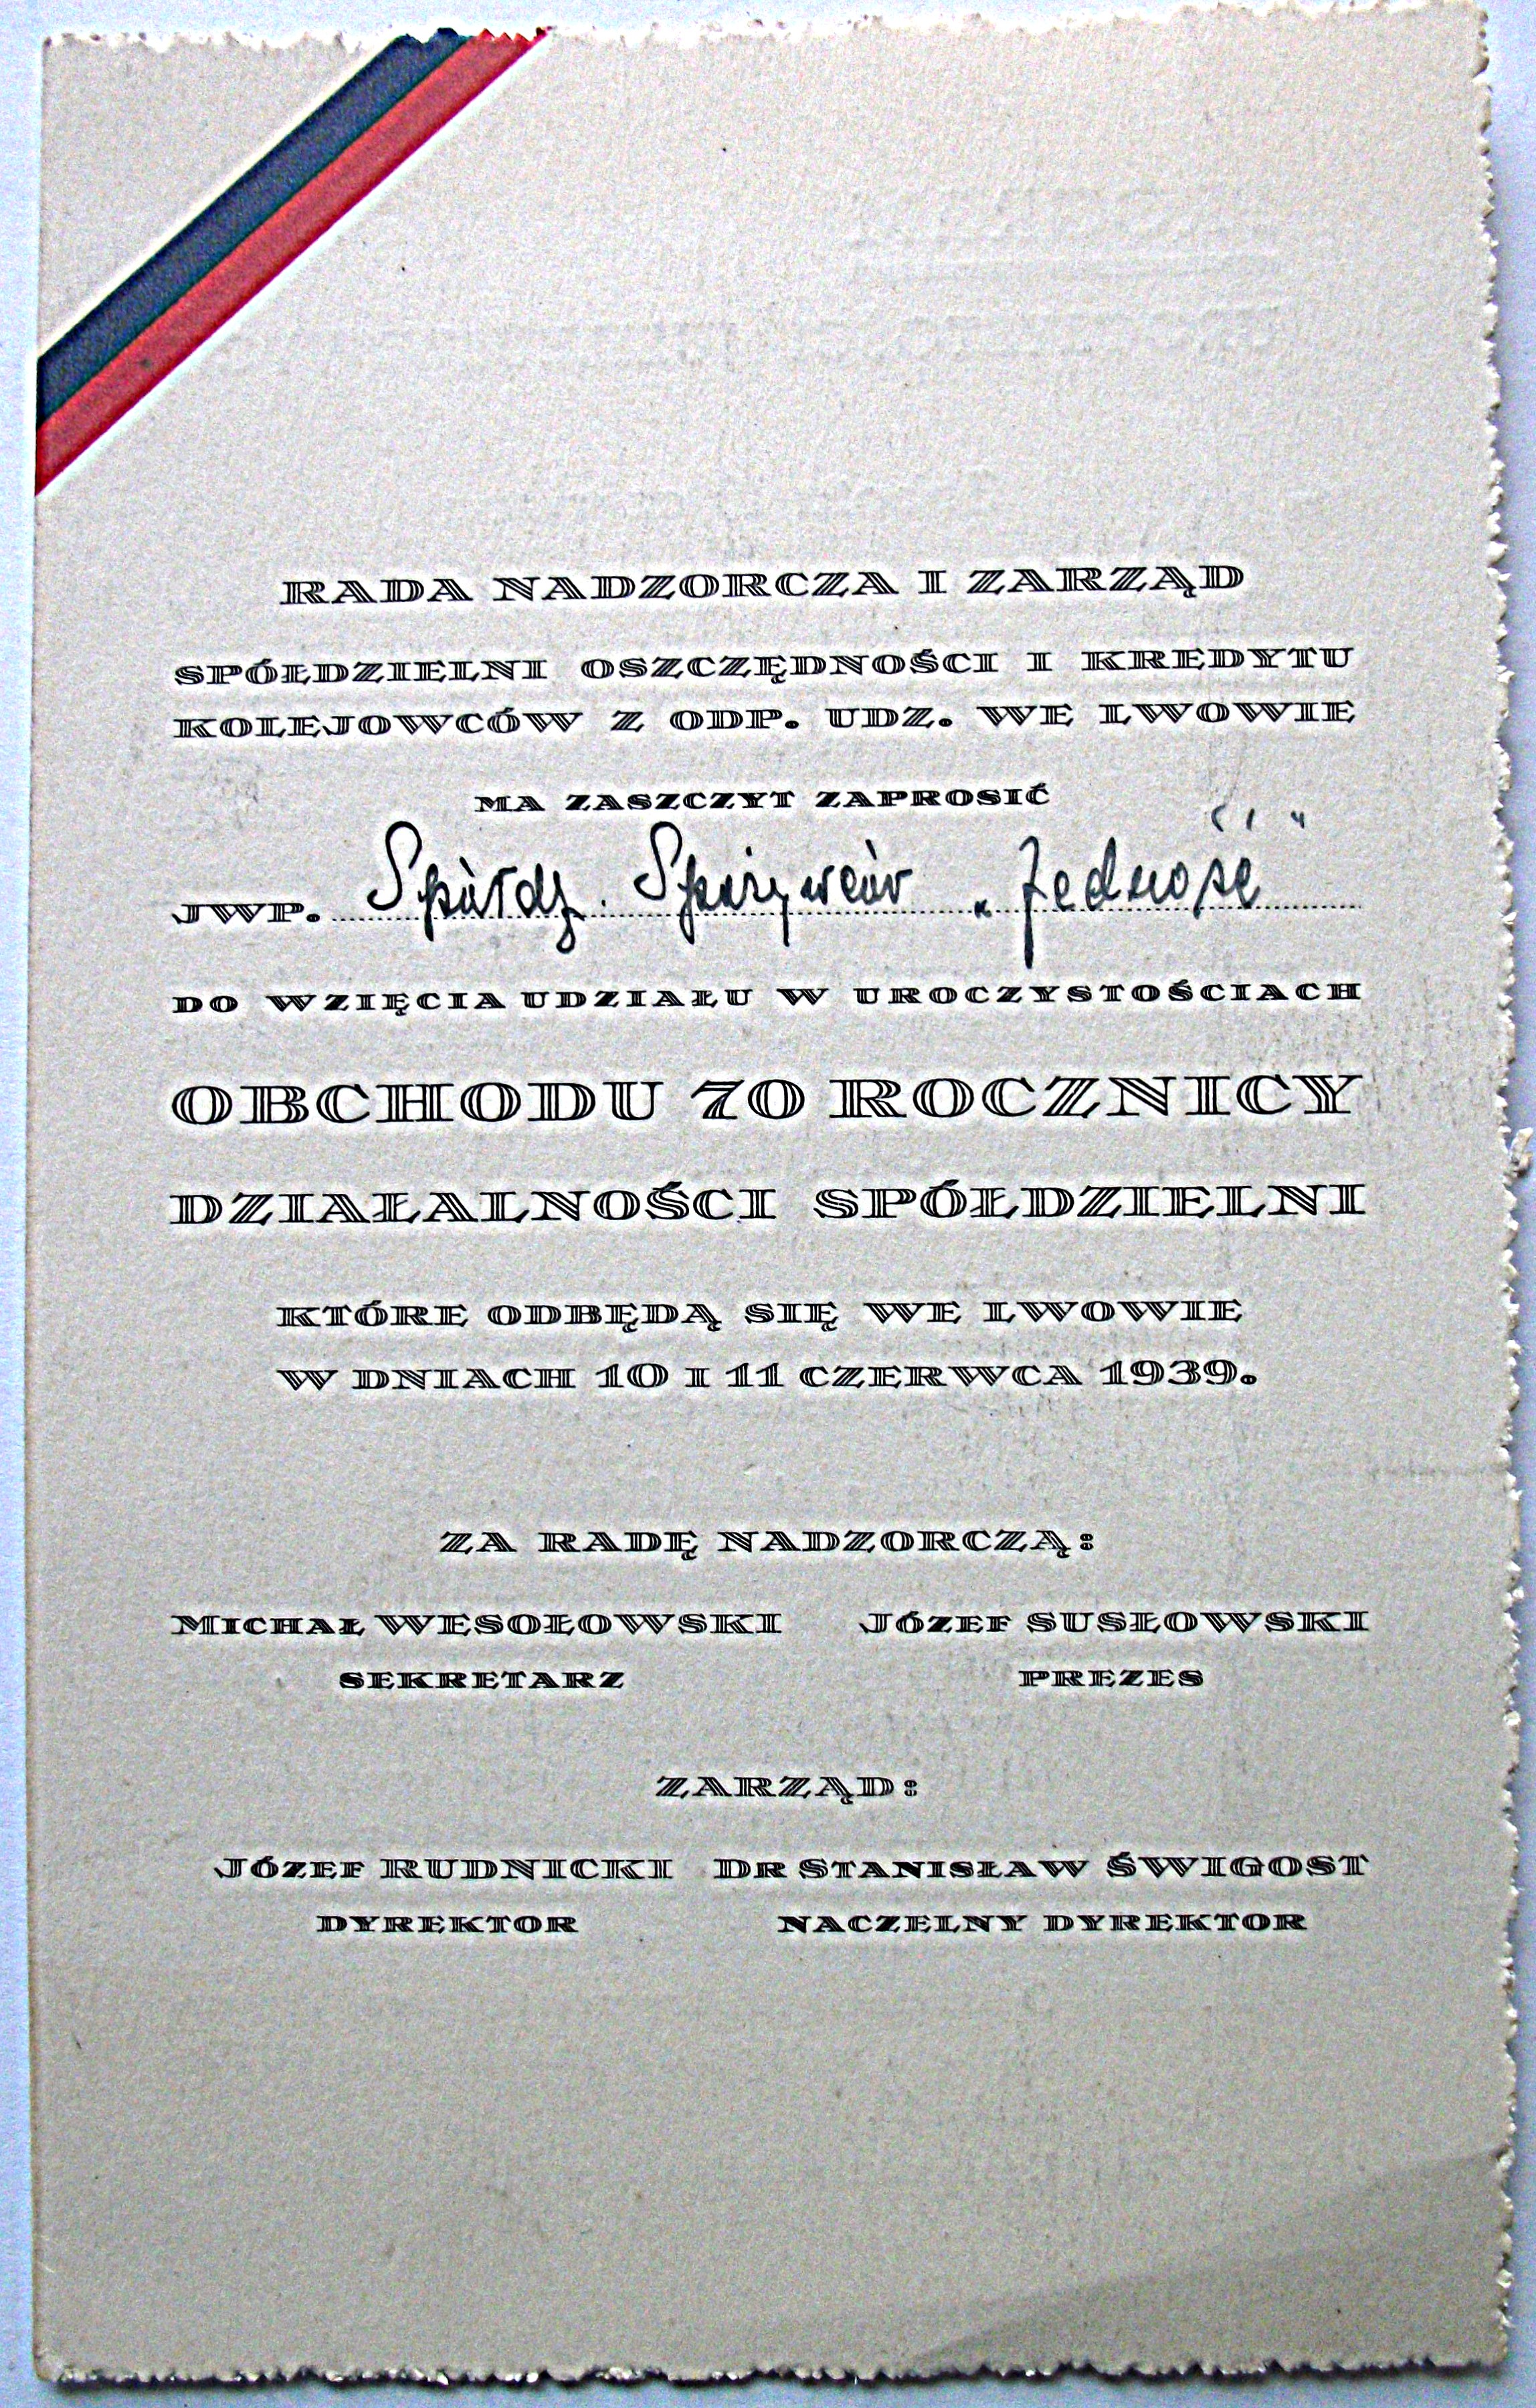 RADA NADZORCZA I ZARZĄD
SPÓŁDZIELNI OSZCZĘDNOŚCI I KREDYTU
KOLEJOWCÓW Z ODP. UDZ. WE LWOWIE
MA ZASZCZYT ZAPROSIĆ
JWP. Spółdz. Spożywców „Jedność"
DO WZIĘCIA UDZIAŁU W UROCZYSTOŚCIACH
OBCHODU 70 ROCZNICY
DZIAŁALNOŚCI SPÓŁDZIELNI
KTÓRE ODBĘDĄ SIĘ WE LWOWIE
W DNIACH 10 I 11 CZERWCA 1939.
ZA RADĘ NADZORCZĄ:
MICHAŁ WESOŁOWSKI JÓZEF SUSŁOWSKI
SEKRETARZ PREZES
ZARZĄD:
JÓZEF RUDNICKI DR STANISŁAW ŚWIGOST
DYREKTOR NACZELNY DYREKTOR